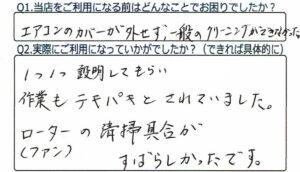 Q1.当店をご利用になる前はどんなことでお困りでしたか？
エアコンのカバーが外せず、一般のクリーニングができなかった
Q2.実際にご利用になっていかがでしたか？（できれば具体的に）
1つ1つ説明してもらい
作業もテキパキとされていました。
ローターの清掃具合が
(ファン)
すばらしかったです。